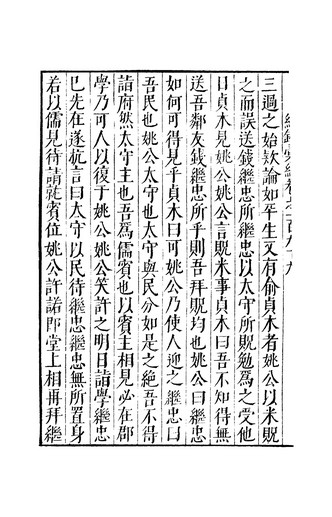 三過之始欵論如平生又有俞貞木者姚公以米貺
之而誤送錢繼忠所繼忠以太守所貺勉爲之受他
日貞木見姚公姚公言貺米事貞木曰吾不知得無
送吾鄰友錢繼忠所乎則吾拜貺均也姚公曰繼忠
如何可得見乎貞木曰可姚公乃使人迎之繼忠曰
吾民也姚公太守也太守與民分如是之絕吾不得
詣府然太守主也吾爲儒賓也以賓主相見必在郡
學乃可人以復于姚公姚公笑許之明日詣學繼忠
已先在遂抗言曰太守以民待繼忠繼忠無所置身
若以儒見待請從賓位姚公許諾即堂上相再拜繼